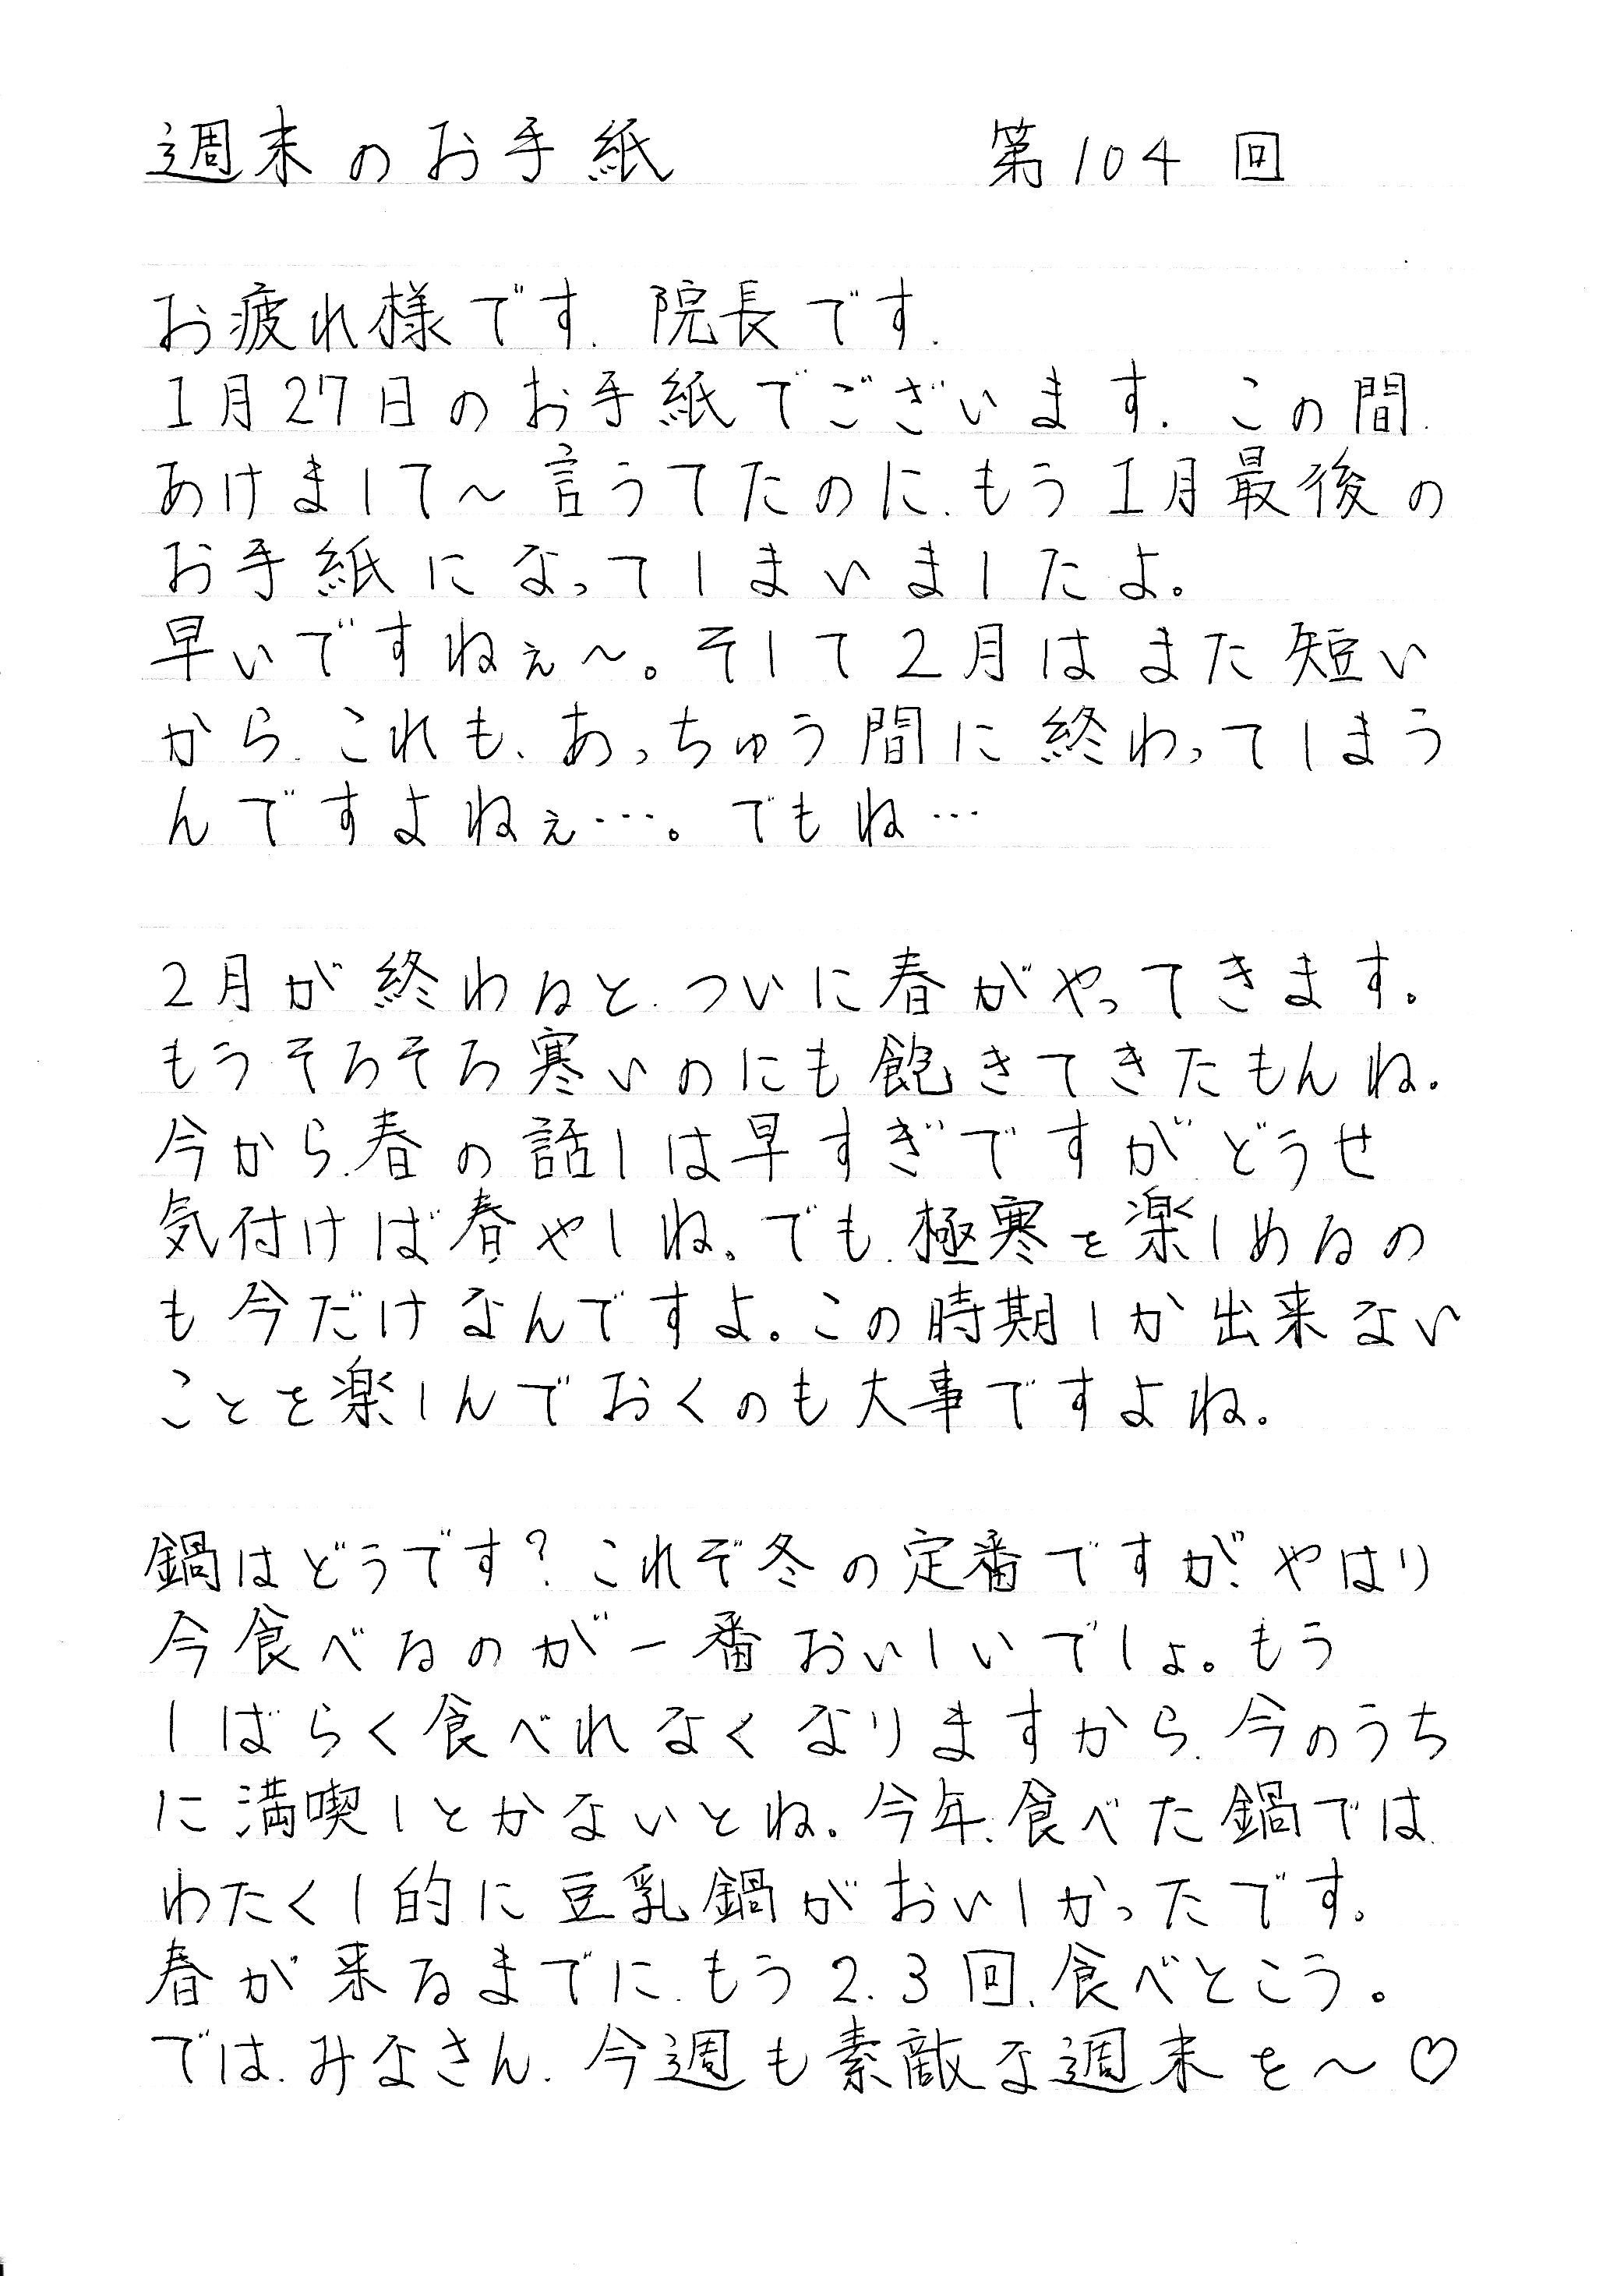 週末のお手紙　第104回
お疲れ様です、院長です。
1月27日のお手紙でございます。この間、
あけまして～言うてたのに、もう1月最後の
お手紙になってしまいましたよ。
早いですねぇ～。そして2月はまた短い
から、これも、あっちゅう間に終わってしまう
んですよねぇ…。でもね…
2月が終わると、ついに春がやってきます。
もうそろそろ寒いのにも飽きてきたもんね。
今から、春の話しは早すぎですが、どうせ
気付けば春やしね。でも、極寒を楽しめるの
も今だけなんですよ。この時期しか出来ない
ことを楽しんでおくのも大事ですよね。
鍋はどうです？これぞ冬の定番ですが、やはり
今食べるのが一番おいしいでしょ。もう
しばらく食べれなくなりますから、今のうち
に満喫しとかないとね。今年、食べた鍋では、
わたくし的に豆乳鍋がおいしかったです。
春が来るまでに、もう2、3回、食べとこう。
では、みなさん、今週も素敵な週末を～♡